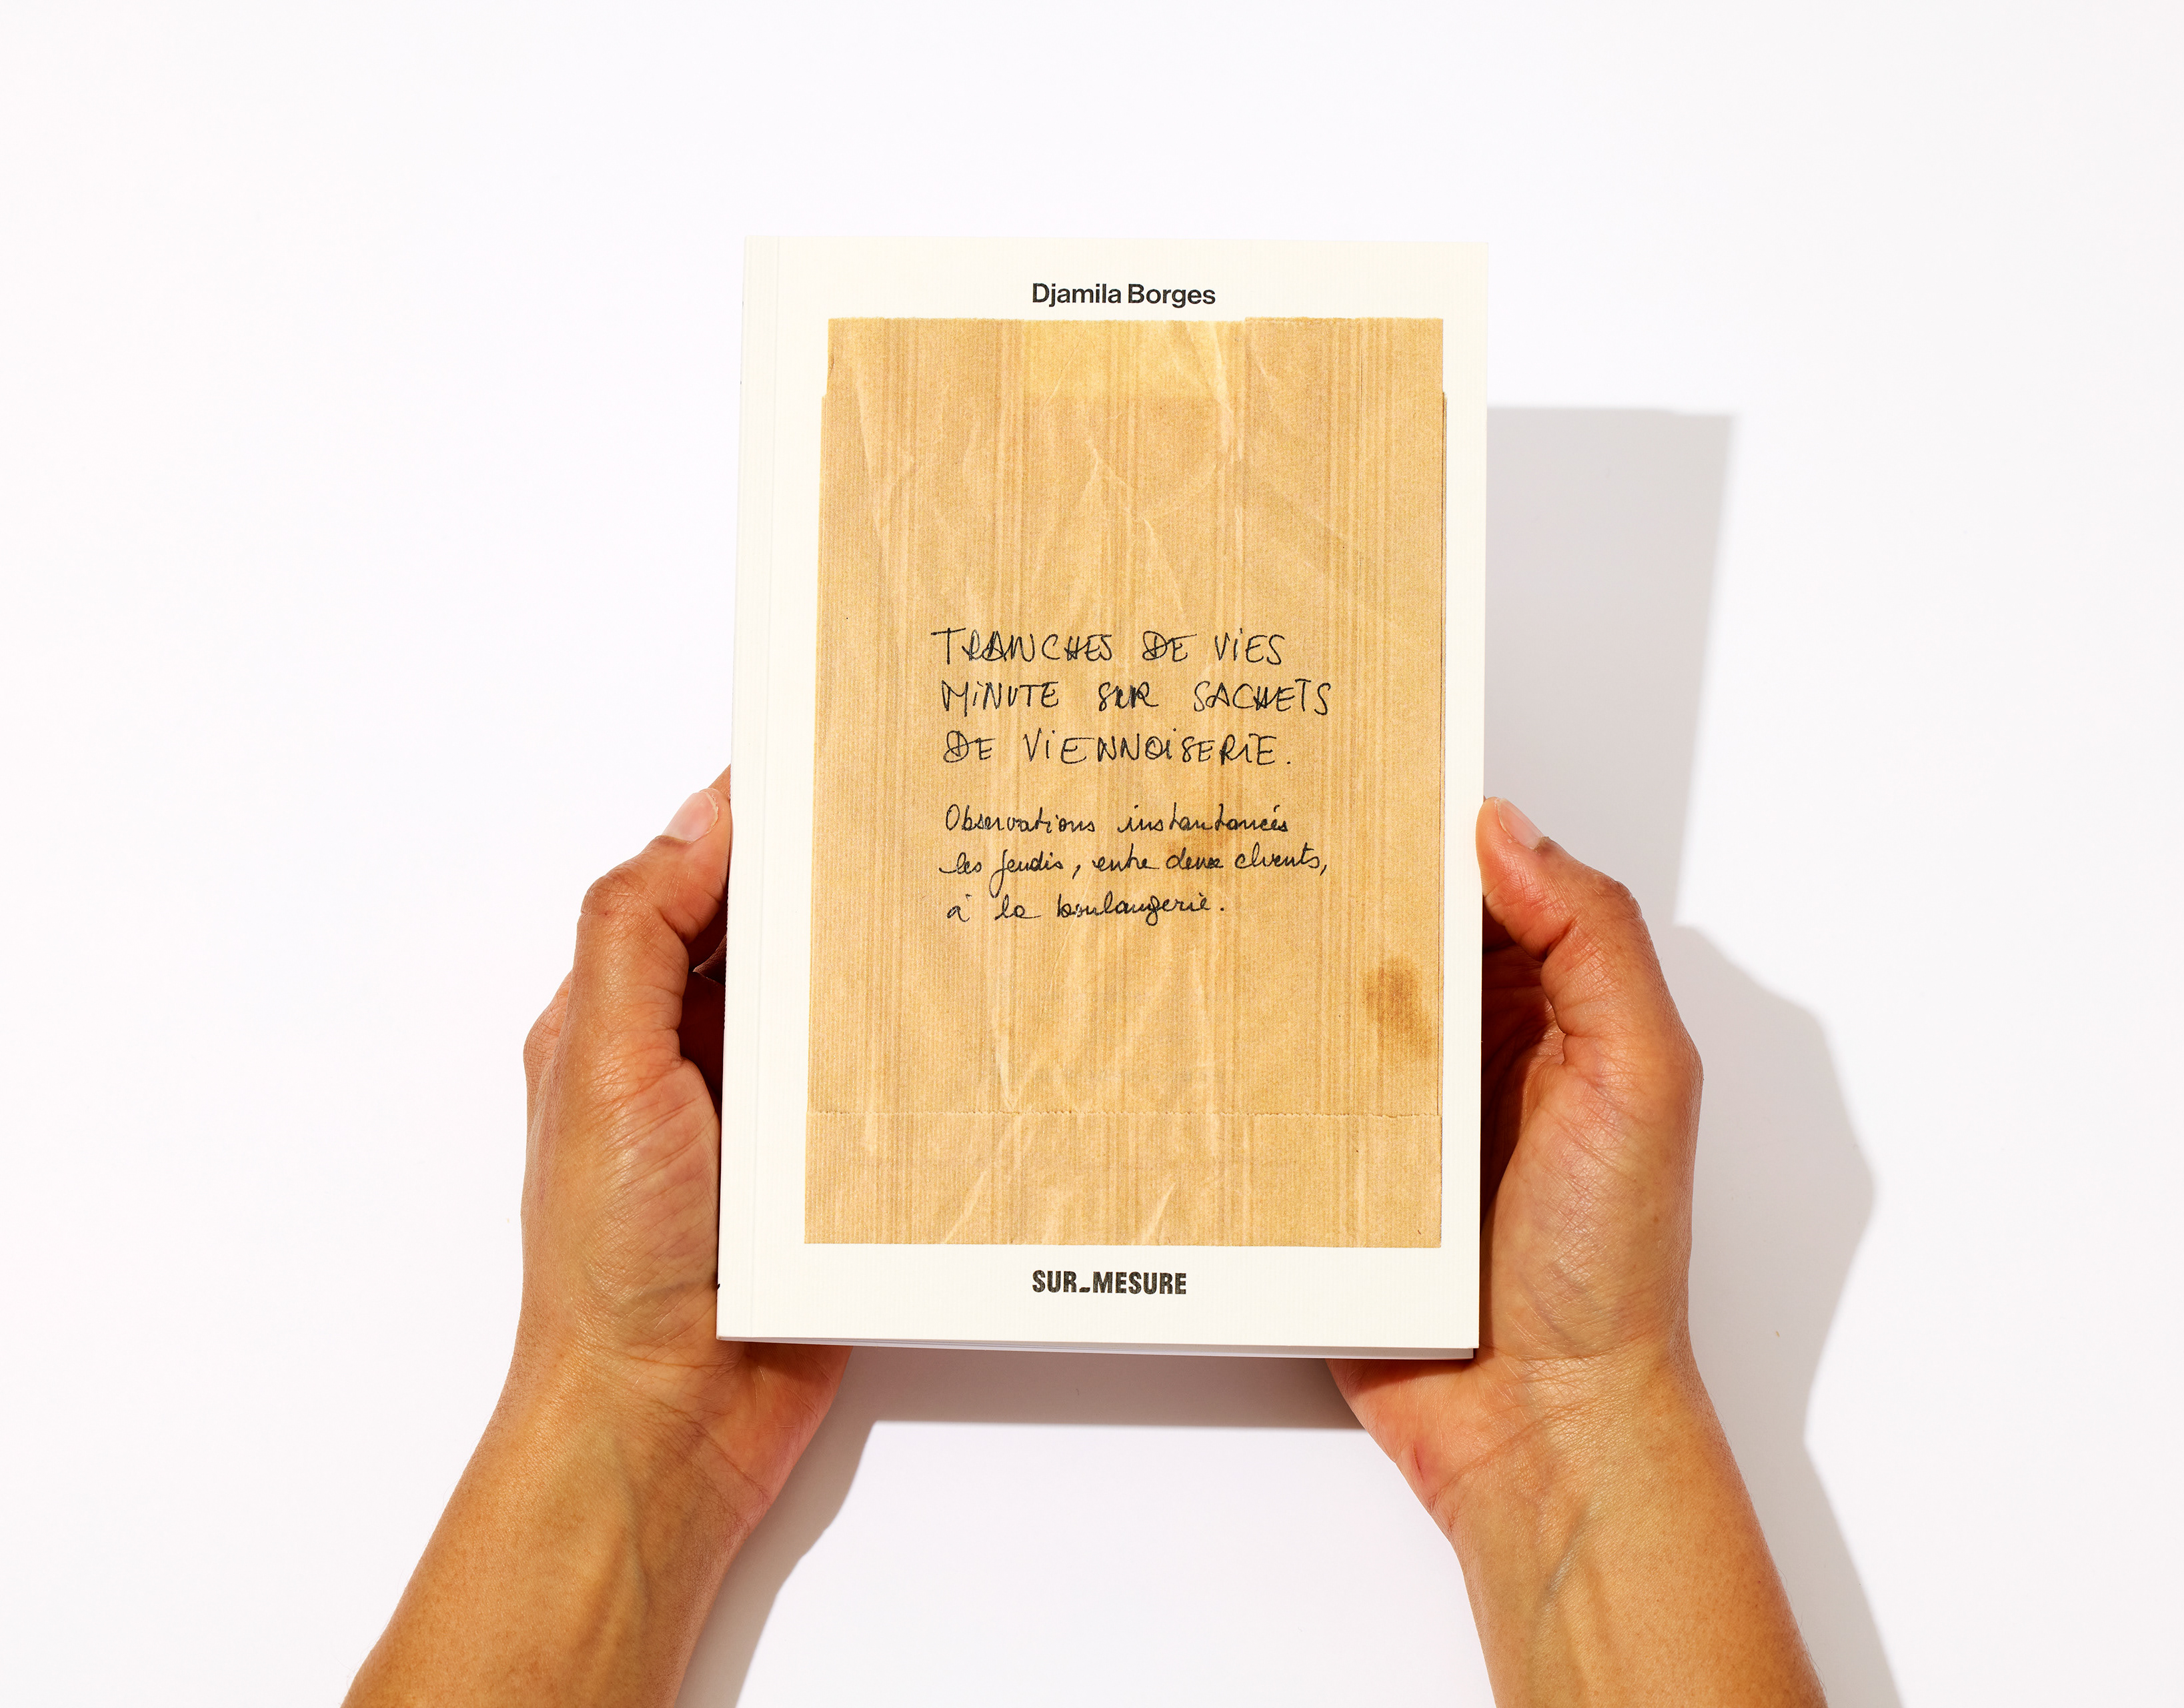 Djamila Borges
TRANCHES DE ViES
MiNUTE SUR SACHETS
DE ViENNOiSERiE.
Observations instantanées
les jeudis, entre deux clients,
à la boulangerie.
SUR_MESURE